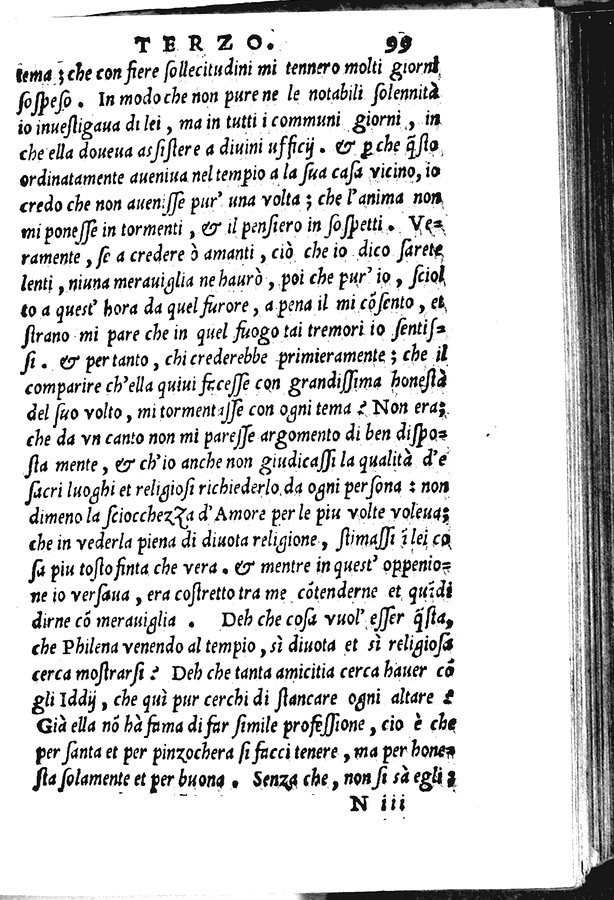 TERZO. 99
tema ; che con fiere sollecitudini mi tennero molti giorni
sospeso . In modo che non pure ne le notabili solennità
io inuestigaua di lei , ma in tutti i communi giorni , in
che ella doueua assistere a diuini ufficij . & ꝑ che q̃sto
ordinatamente aueniua nel tempio a la sua casa vicino, io
credo che non auenisse pur' una volta ; che l'anima non
mi ponesse in tormenti , & il pensiero in sospetti . Ve=
ramente , se a credere ò amanti , ciò che io dico sarete
lenti , niuna merauiglia ne haurò , poi che pur' io , sciol
to a quest' hora da quel furore , a pena il mi cõsento , et
strano mi pare che in quel fuogo tai tremori io sentis=
si . & per tanto , chi crederebbe primieramente ; che il
comparire ch'ella quiui facesse con grandissima honestà
del suo volto , mi tormentasse con ogni tema ? Non era;
che da vn canto non mi paresse argomento di ben dispo=
sta mente , & ch'io anche non giudicassi la qualità d'e
sacri luoghi et religiosi richiederlo da ogni persona : non
dimeno la sciocchezza d'Amore per le piu volte voleua;
che in vederla piena di diuota religione , stimassi ĩ lei co
sa piu tosto finta che vera . & mentre in quest' oppenio=
ne io versaua , era costretto tra me cõtenderne et quĩdi
dirne cõ merauiglia . Deh che cosa vuol' esser q̃sta,
che Philena venendo al tempio , sì diuota et sì religiosa
cerca mostrarsi ? Deh che tanta amicitia cerca hauer cõ
gli Iddij , che quì pur cerchi di stancare ogni altare ?
Già ella nõ hà fama di far simile professione , cio è che
per santa et per pinzochera si facci tenere , ma per hone=
sta solamente et per buona . Senza che , non si sà egli ;
N iii